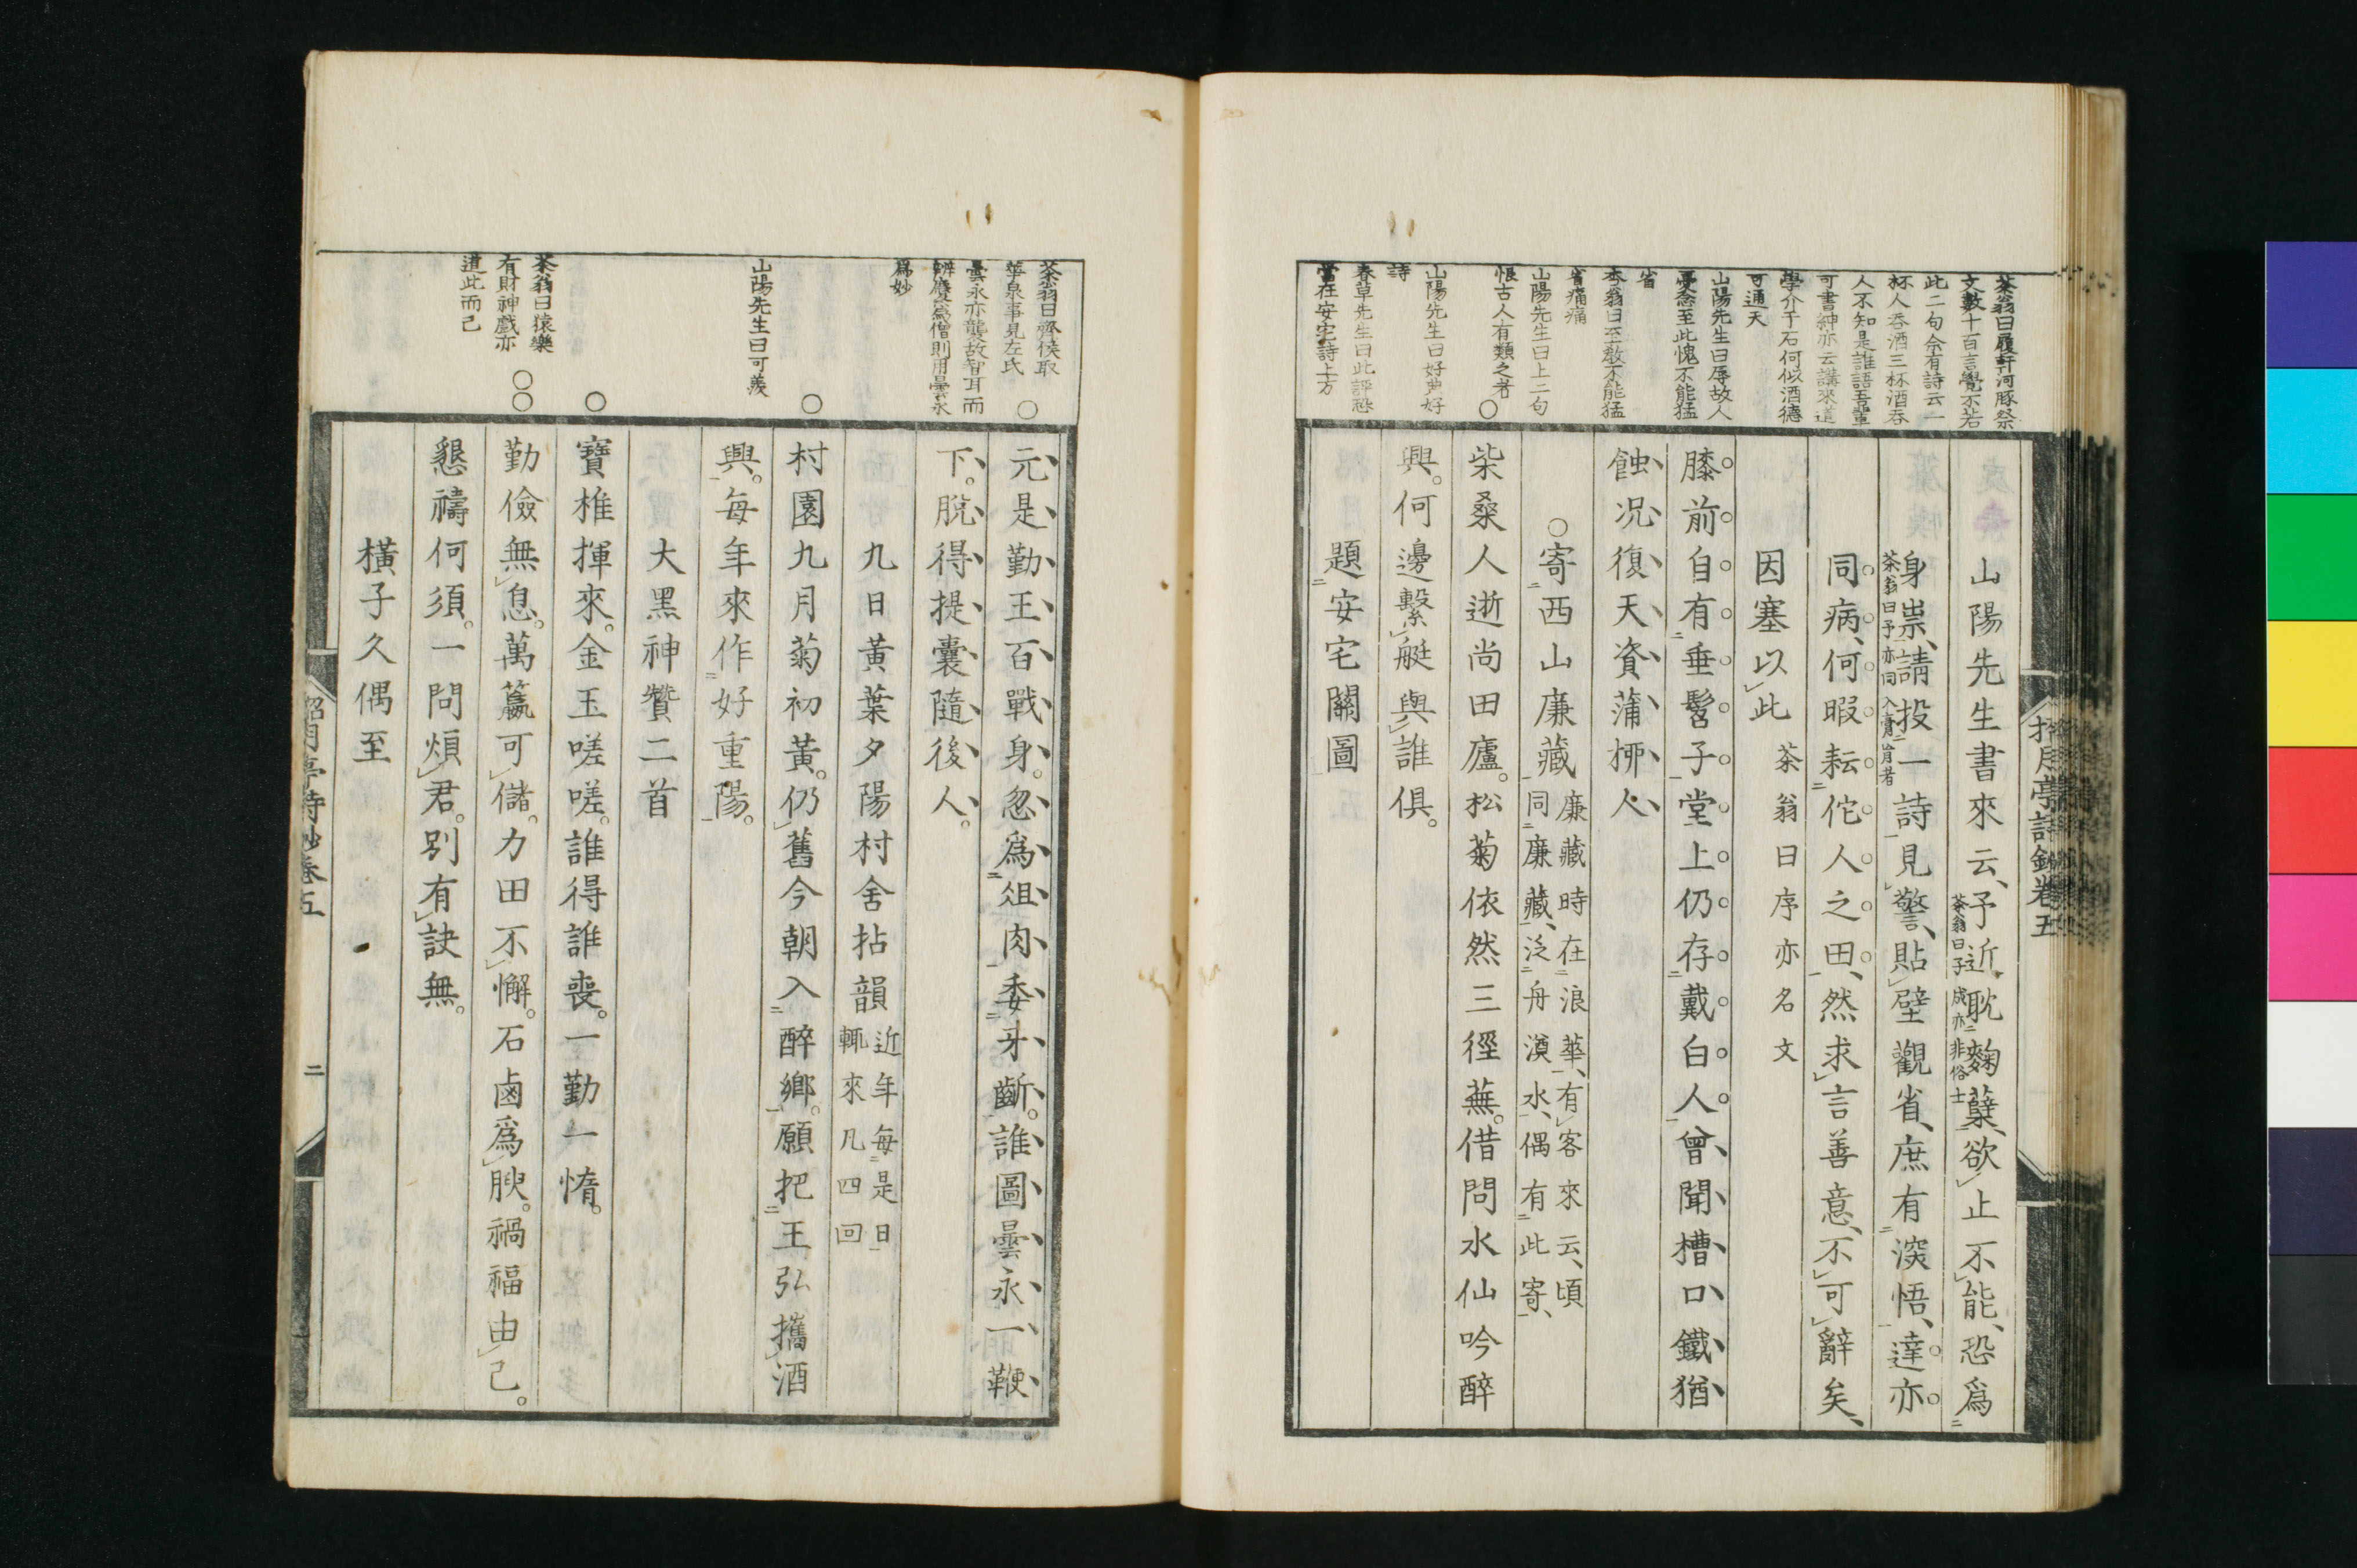 茶翁曰履軒河豚祭
文數十百言覺不若
此二句余有詩云一
杯人呑酒三杯酒呑
人不知是誰語吾輩
可書紳亦云講來道
學介于石何似酒德
可通天
山陽先生曰辱故人
憂念至此愧不能猛
省
杏翁曰至敎不能猛
省痛痛
山陽先生曰上二句
恨古人有類之者
山陽先生曰好也好
詩
春草先生曰此評恐
當在安宅詩上方
山陽先生書來云、予近耽麴蘖、欲止不能、恐爲
茶翁曰子成亦非俗士
身祟、請投一詩見警、貼壁觀省、庶有深悟、達亦
茶翁曰予亦同入膏肓者
同病、何暇耘佗人之田、然求言善意、不可辭矣、
因塞以此 茶翁曰序亦名文
膝前自有垂髫子堂上仍存戴白人曾聞槽口鐵猶
蝕况復天資蒲柳人
寄西山廉藏 廉藏時在浪華、有客來云、頃
同廉藏、泛舟澱水、偶有此寄、
柴桑人逝尚田廬。松菊依然三徑蕪。借問水仙吟醉
興。何邊繫艇與誰俱。
題安宅關圖
招月亭詩鈔卷五
茶翁曰齊侯取
華泉事見左氏
曇永亦襲故智耳而
辨慶爲僧則用曇永
爲妙
山陽先生曰可羨
茶翁曰猿樂
有財神戲亦
道此而己
元是勤王百戰身。忽爲俎肉委牙齗。誰圖曇永一鞭
下。脫得提囊隨後人。
九日黃葉夕陽村舍拈韻 近年每是日
輒來凡四回
村園九月菊初黃。仍舊今朝入醉鄉。願把王弘攜酒
興。每年來作好重陽。
大黑神贊二首
寶椎揮來。金玉嗟嗟。誰得誰喪。一勤一惰。
勤儉無息。萬籯可儲。力田不懈。石鹵爲腴。禍福由己。
懇禱何須。一問煩君。別有訣無。
橫子久偶至
招月亭詩鈔卷五
二